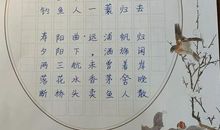 钓鱼人一蓑归去
寿阳曲·远浦帆归
夕阳下，酒旆闲
两三航未曾着岸
落花水香茅舍晚
断桥头卖鱼人散